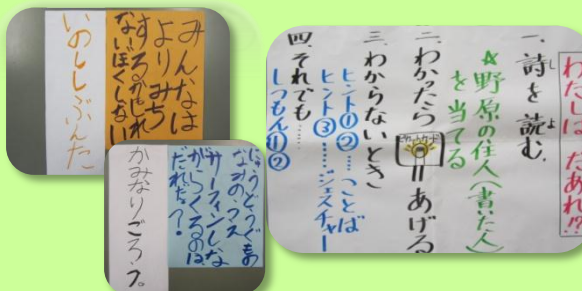 みんなは
よりみち
するかもしれ
ないぼくしない
いのししぶんた
なみのうえ
サーフィンしな
がらくるのは
だれだ？
かみなりごろう。
わたしは だあれ!?
一、詩を読む。
し
よ
☆野原の住人（書いた人）
を当てる
二、わかったら
＝あげる
三、わからないとき
ヒント①②……ことば
ヒント③……ジェスチャー
四、それでも……
しつもん①②